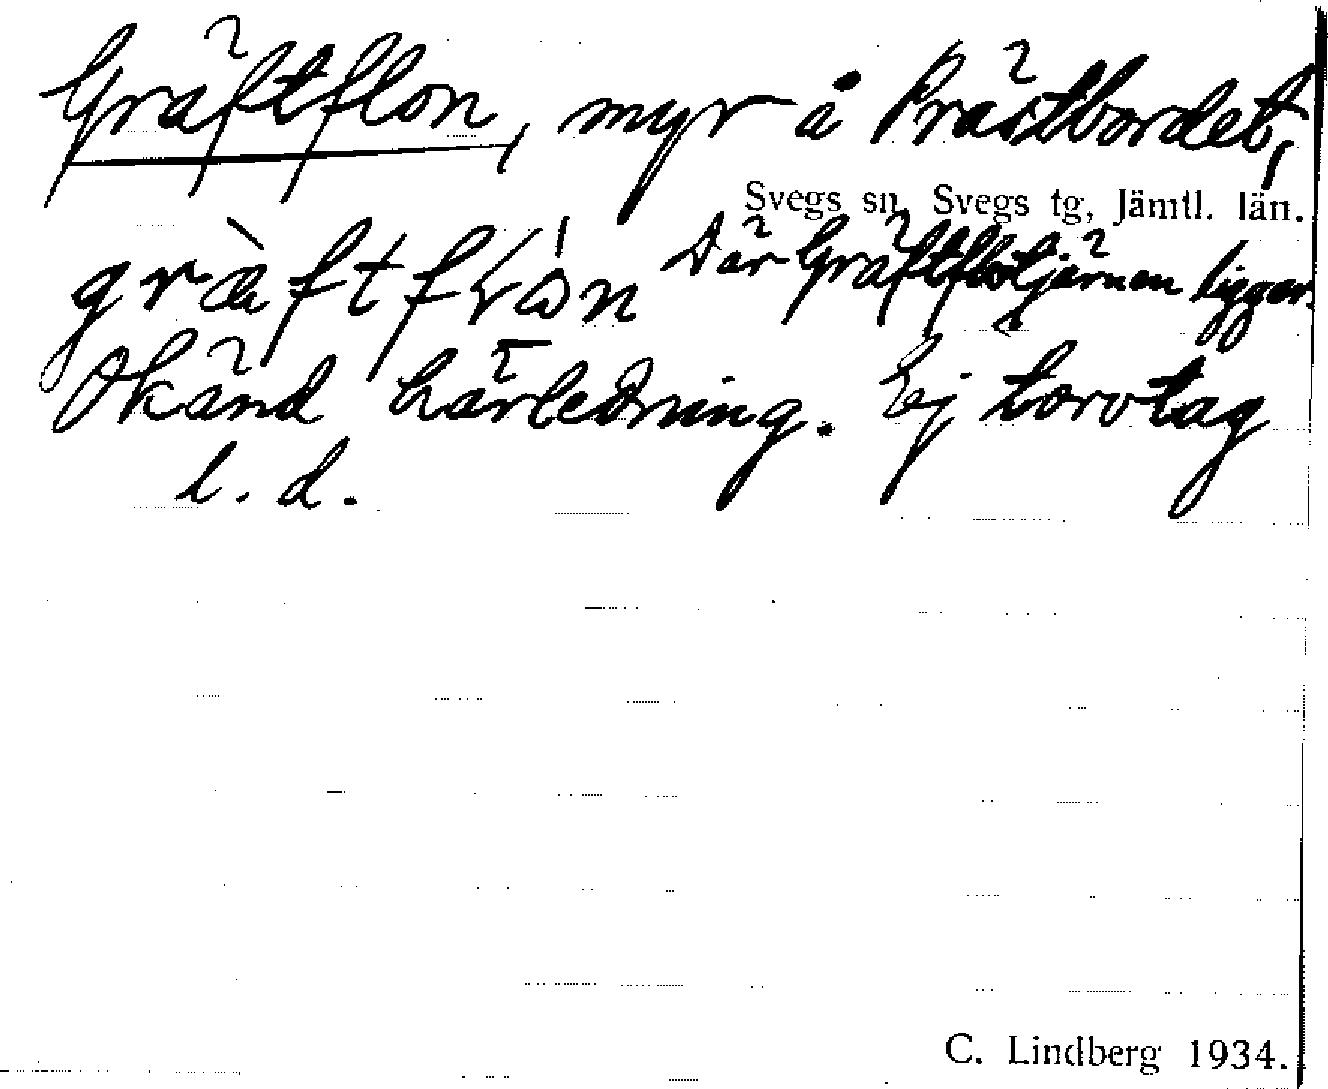 Gräftflon, myr å Prästbordet,
Svegs sn, Svegs tg, Jämtl. län.
där Gräftflotjärnen ligger.
Okänd härledning. Ej torvtag
l. d.
C. Lindberg 1934.